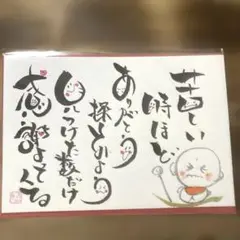 苦しい
時ほど
ありがとう
探しかよう
見つけた数だけ
感謝よってくる